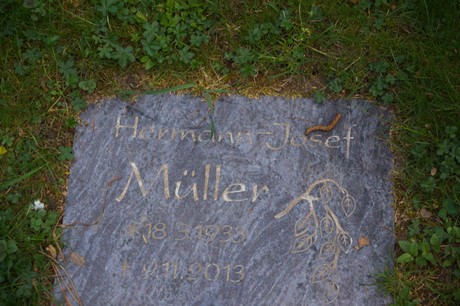 Hermann-Josef
Müller
* 18.3.1933
† 9.11.2013